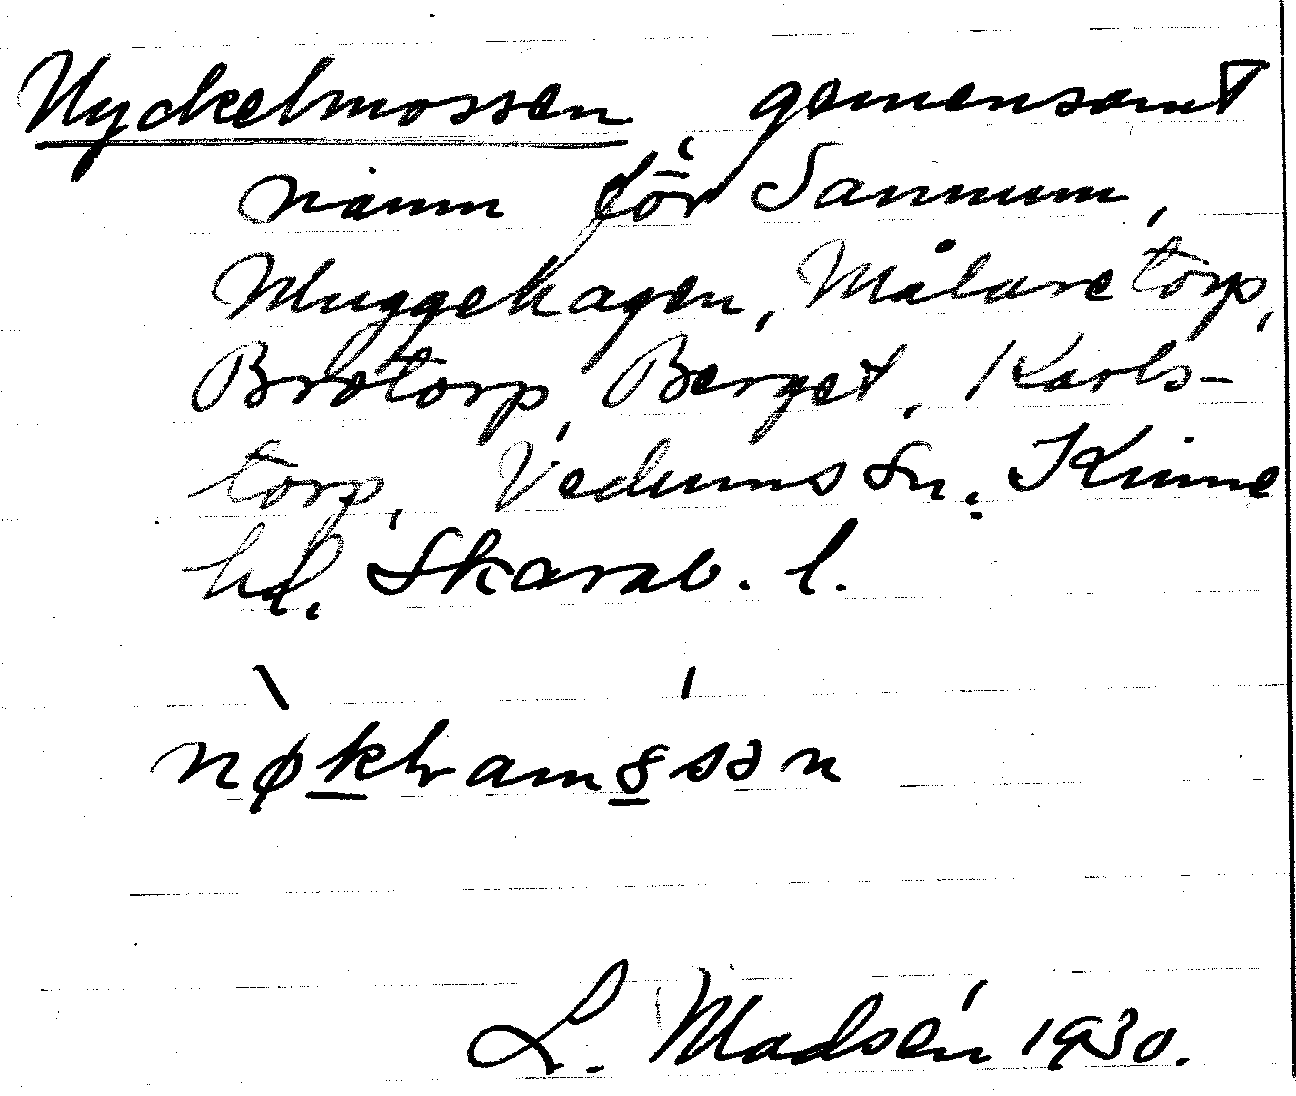 Nyckelmossen, gemensamt
namn för Sannum,
Muggehagen, Målaretorp,
Brotorp, Berget, Karls-
torp, Vedums sn. Kinne
hd. Skarab. l.
L. Madsén 1930.